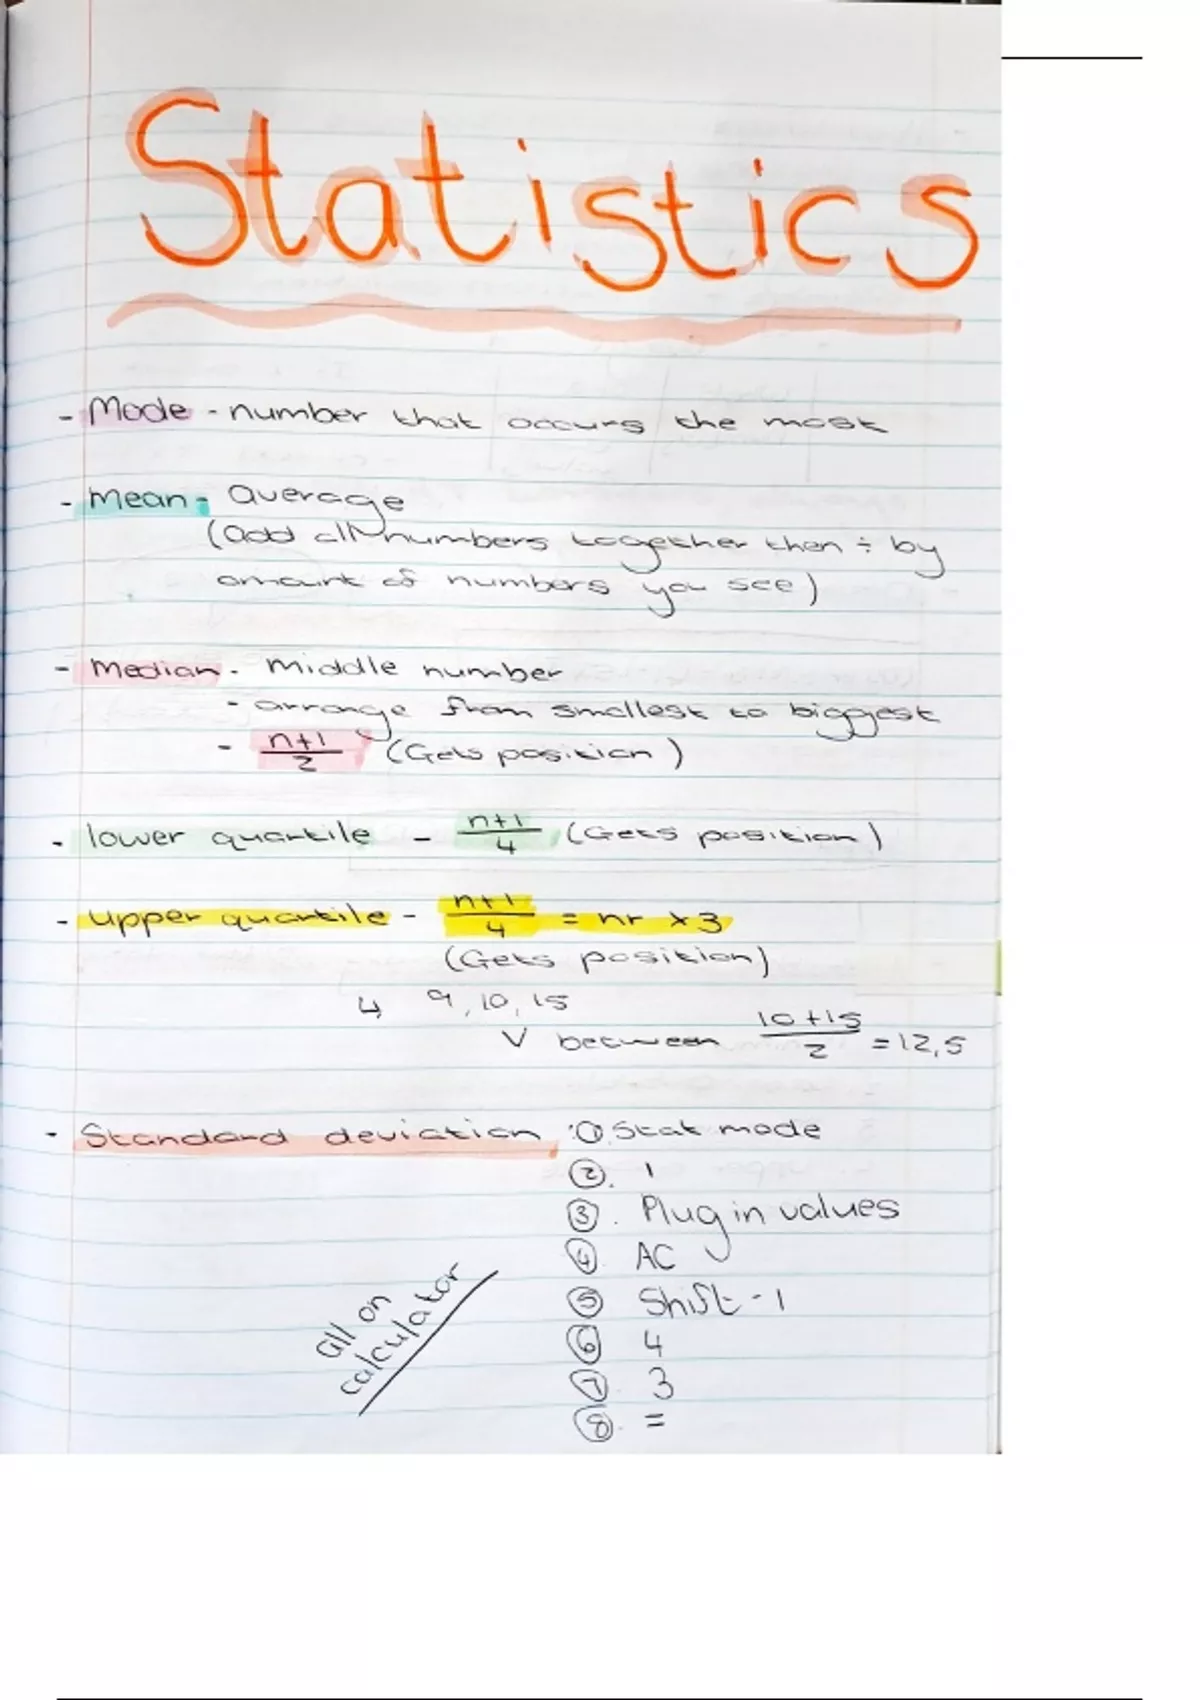 Statistics
- Mode - number that occurs the most
- Mean - average
(add all numbers together then ÷ by
amount of numbers you see)
- Median - Middle number
- arrange from smallest to biggest
- n+1/2 (Gets position)
- lower quartile - n+1/4 (Gets position)
- upper quartile - n+1/4 = nr x 3
(Gets position)
↳ 9, 10, 15
V between 10+15/2 = 12,5
- Standard deviation : ① Stat mode
②. 1
③. Plug in values
④. AC
⑤ Shift - 1
⑥ 4
⑦. 3
⑧. =
all on
calculator